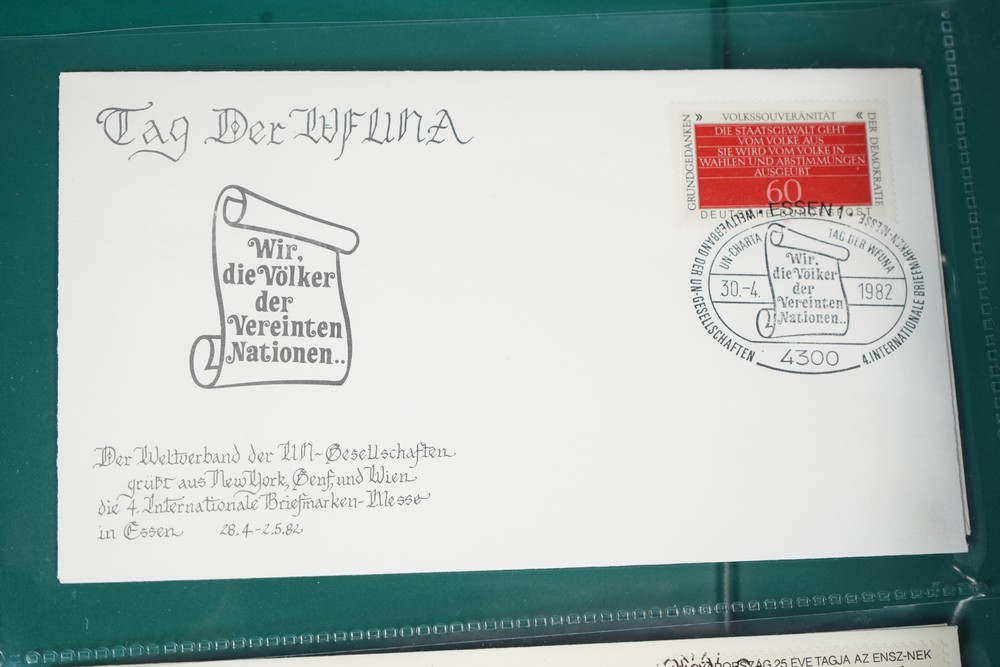 Tag Der WFUNA
Wir,
die Völker
der
Vereinten
Nationen..
Der Weltverband der UN-Gesellschaften
grüßt aus New York, Genf, und Wien
die 4. Internationale Briefmarken-Messe
in Essen 28.4-2.5.82
» VOLKSSOUVERÄNITÄT «
GRUNDGEDANKEN
DER DEMOKRATIE
DIE STAATSGEWALT GEHT
VOM VOLKE AUS
SIE WIRD VOM VOLKE IN
WAHLEN UND ABSTIMMUNGEN
AUSGEÜBT
60
DEUTSCHE BUNDESPOST
• ESSEN 1 •
WELTVERBAND DER UN-GESELLSCHAFTEN
4. INTERNATIONALE BRIEFMARKEN-MESSE
UN-CHARTA
TAG DER WFUNA
30.-4. 1982
Wir,
die Völker
der
Vereinten
Nationen..
4300
25 ÉVE TAGJA AZ ENSZ-NEK